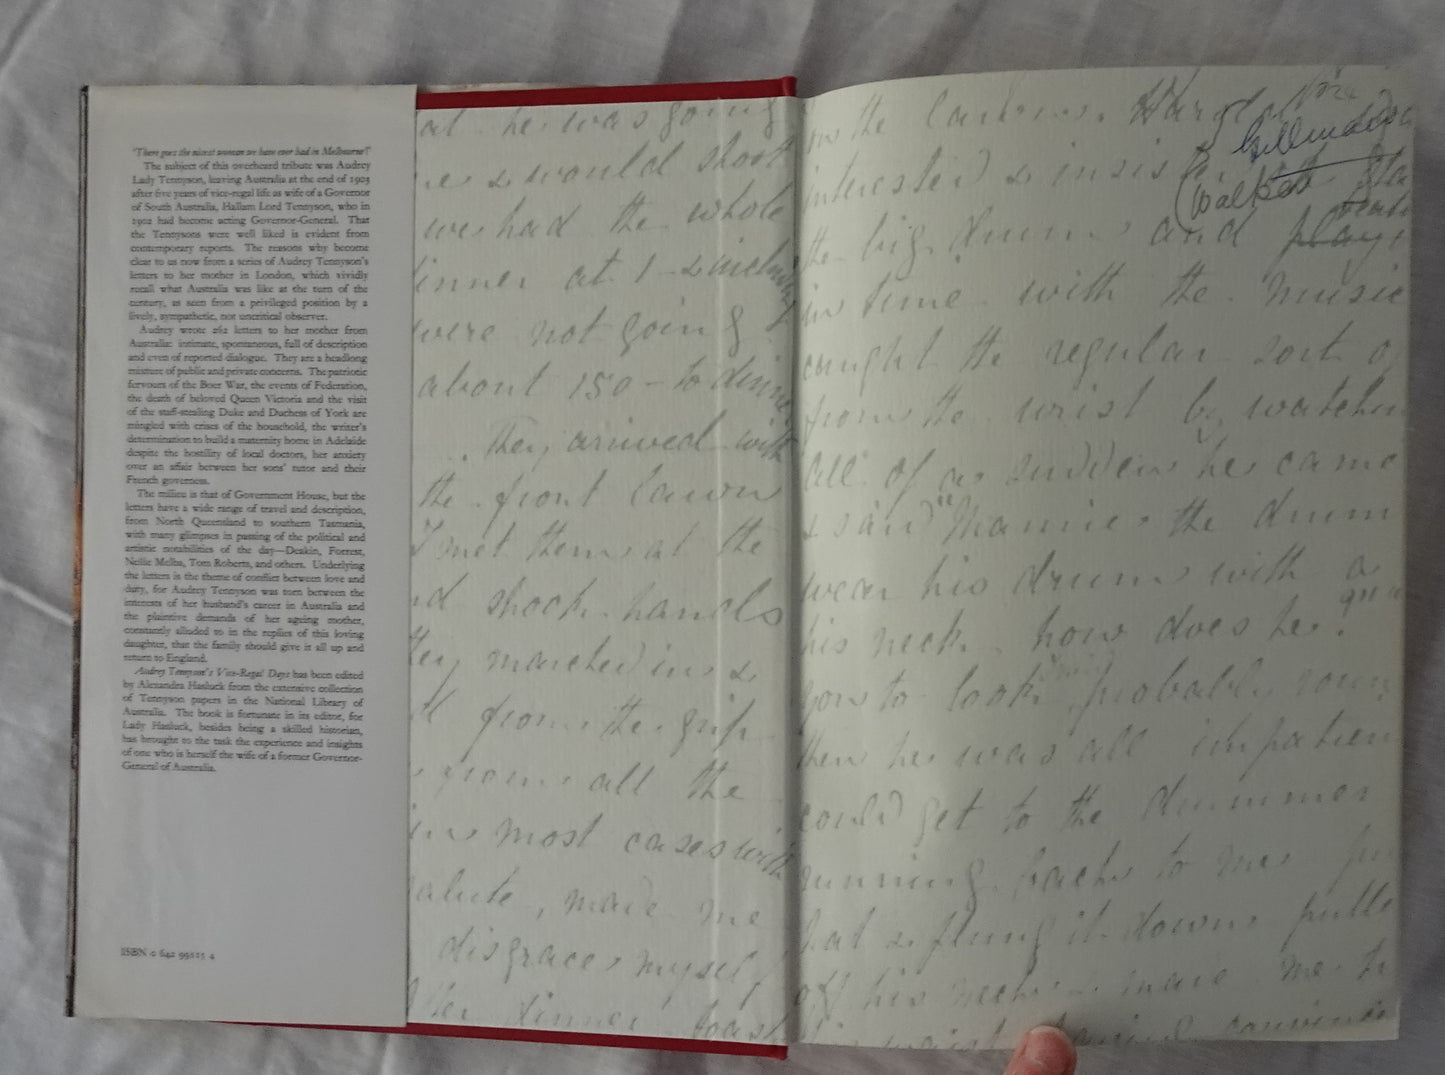 'There goes the nicest woman we have ever had in Melbourne!'
The subject of this overheard tribute was Audrey
Lady Tennyson, leaving Australia at the end of 1903
after five years of vice-regal life as wife of a Governor
of South Australia, Hallam Lord Tennyson, who in
1902 had become acting Governor-General. That
the Tennysons were well liked is evident from
contemporary reports. The reasons why become
clear to us now from a series of Audrey Tennyson's
letters to her mother in London, which vividly
recall what Australia was like at the turn of the
century, as seen from a privileged position by a
lively, sympathetic, not uncritical observer.
Audrey wrote 262 letters to her mother from
Australia: intimate, spontaneous, full of description
and even of reported dialogue. They are a headlong
mixture of public and private concerns. The patriotic
fervours of the Boer War, the events of Federation,
the death of beloved Queen Victoria and the visit
of the staff-stealing Duke and Duchess of York are
mingled with crises of the household, the writer's
determination to build a maternity home in Adelaide
despite the hostility of local doctors, her anxiety
over an affair between her sons' tutor and their
French governess.
The milieu is that of Government House, but the
letters have a wide range of travel and description,
from North Queensland to southern Tasmania,
with many glimpses in passing of the political and
artistic notabilities of the day—Deakin, Forrest,
Nellie Melba, Tom Roberts, and others. Underlying
the letters is the theme of conflict between love and
duty, for Audrey Tennyson was torn between the
interests of her husband's career in Australia and
the plaintive demands of her ageing mother,
constantly alluded to in the replies of this loving
daughter, that the family should give it all up and
return to England.
Audrey Tennyson's Vice-Regal Days has been edited
by Alexandra Hasluck from the extensive collection
of Tennyson papers in the National Library of
Australia. The book is fortunate in its editor, for
Lady Hasluck, besides being a skilled historian,
has brought to the task the experience and insights
of one who is herself the wife of a former Governor-
General of Australia.
ISBN 0 642 99125 4
at he was going
& would shoot
we had the whole
inner at 1 &
were not going
about 150 - to dinner
They arrived with
the front lawn
I met them at the
nd shook hands
they marched in &
from the grip
from all the
in most cases with
alute, made me
disgrace myself
dinner
on the lawn. Harold
interested & insis
the big drum and play
in time with the music
caught the regular sort o
from the wrist by watchin
all of a sudden he came
& said "Mamie the drum
wear his drum with a
his neck, how does he?
you to look, probably
then he was all impatien
could get to the drummer
running back to me
hat & flung it down pulle
off his neck made me
waist
(Walker